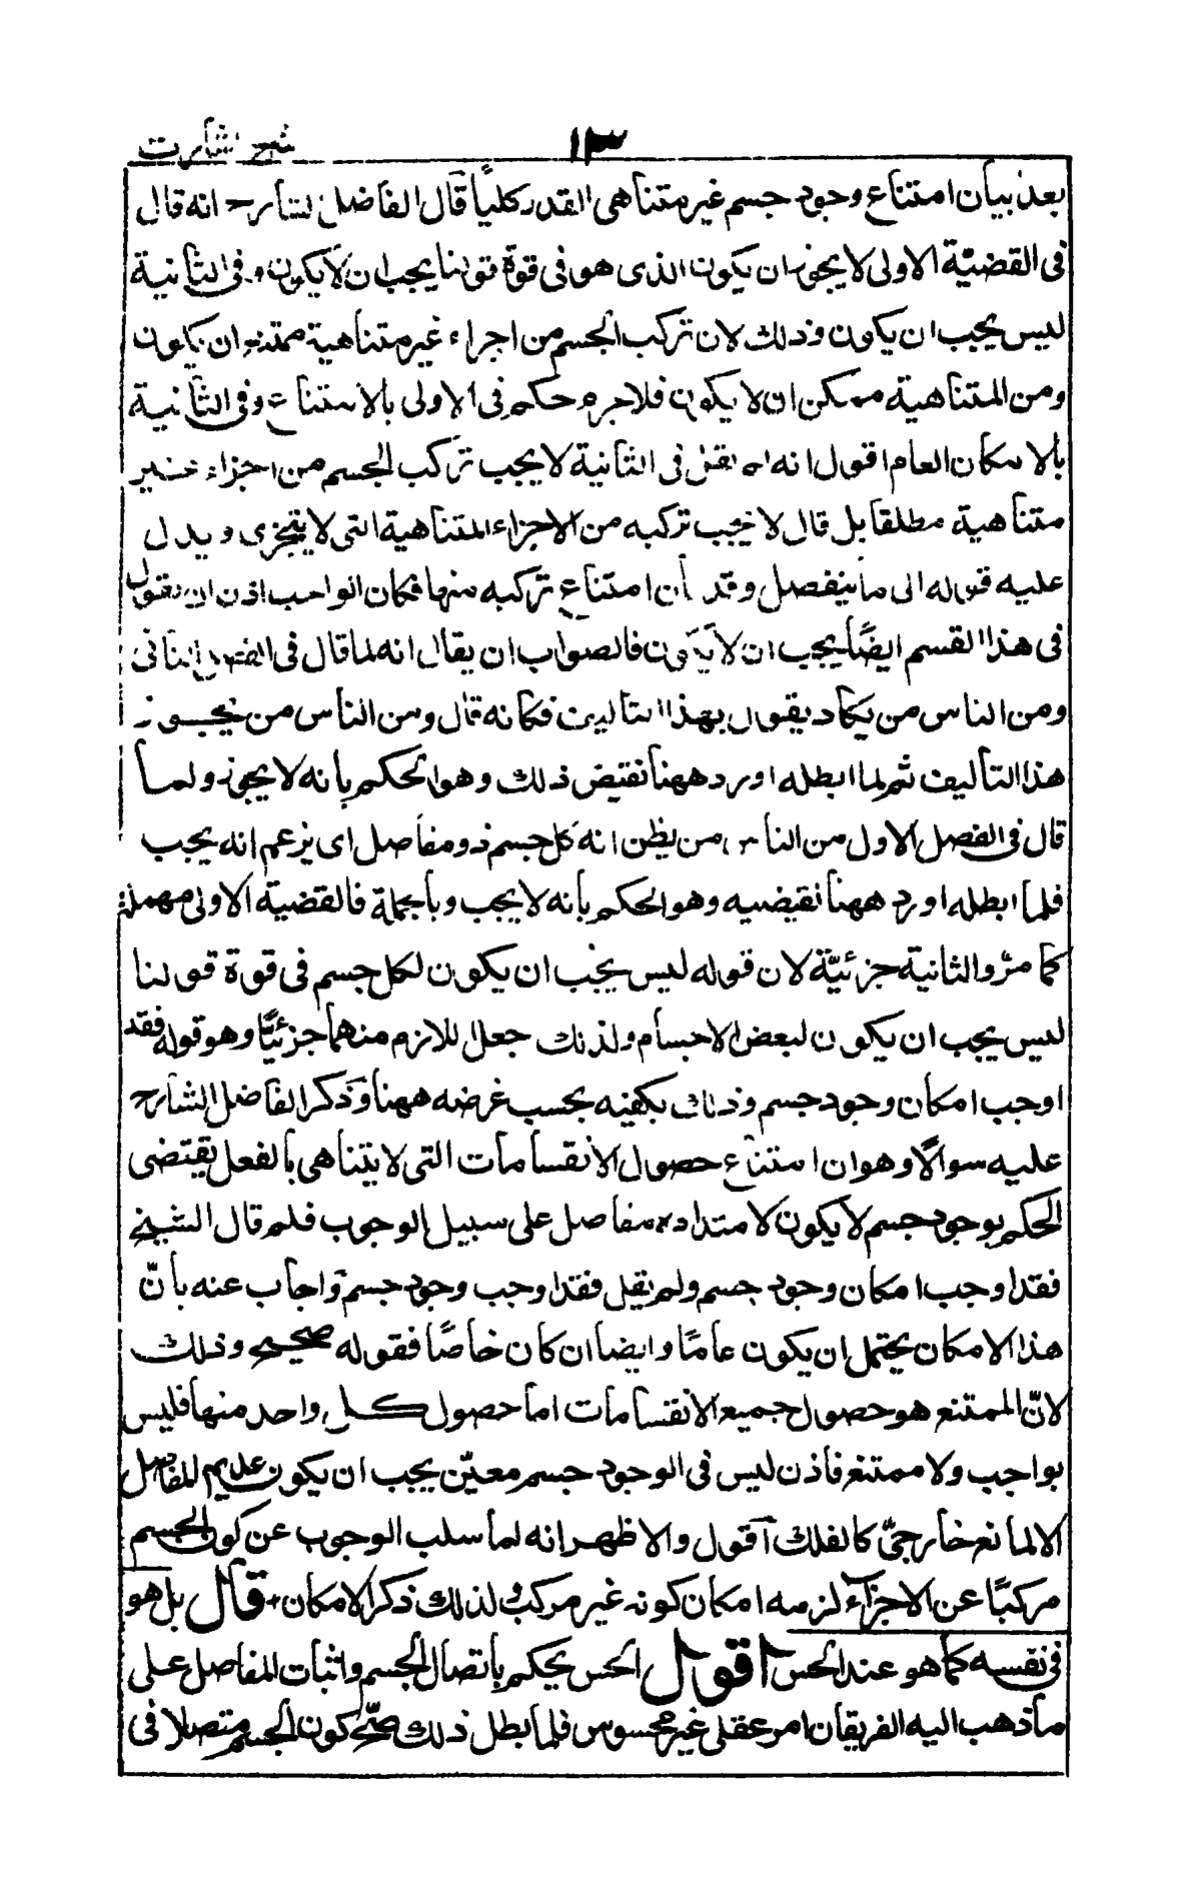 ١٣
شرح اشارت
بعد بيان امتناع وجود جسم غير متناهى القدر كليًا قال الفاضل الشارح انه قال
فى القضيّة الاولى لا يجوز ان يكون الذى هو فى قوة قولنا يجب ان لا يكون و فى الثانية
ليس يجب ان يكون وذلك لان تركب الجسم من اجزاء غير متناهية ممتنع ان يكون
ومن المتناهية ممكن ان لا يكون فلا جرم حكم فى الاولى بالامتناع وفى الثانية
بالامكان العام اقول انه لم يقل فى الثانية لا يجب تركب الجسم من اجزاء غير
متناهية مطلقا بل قال لا يجب تركبه من الاجزاء المتناهية التى لا يتجزى و يدل
عليه قوله الى ما ينفصل وقد بان امتناع تركبه منها فكان الواجب اذن ان يقول
فى هذا القسم ايضًا يجب ان لا يكون فالصواب ان يقال انه لما قال فى الفصل الثانى
ومن الناس من يكاد يقول بهذا التاليف فكانه قال ومن الناس من يجوز
هذا التأليف ثم لما ابطله اورد ههنا نقيض ذلك وهو الحكم بانه لا يجوز ولما
قال فى الفصل الاول من الناس من يظن انه كل جسم ذو مفاصل اى يزعم انه يجب
فلما ابطله اورد ههنا نقيضيه وهو الحكم بأنه لا يجب وبالجملة فالقضية الاولى مهملة
كما مرّ والثانية جزئيّة لان قوله ليس يجب ان يكون لكل جسم فى قوة قولنا
ليس يجب ان يكون لبعض الاجسام ولذلك جعل اللازم منهما جزئيًّا وهو قوله فقد
اوجب امكان وجود جسم وذلك يكفيه بحسب غرضه ههنا وذكر الفاضل الشارح
عليه سوالًا وهو ان امتناع حصول الانقسامات التى لا يتناهى بالفعل يقتضى
الحكم بوجود جسم لا يكون لامتداده مفاصل على سبيل الوجوب فلم قال الشيخ
فقد اوجب امكان وجود جسم ولم يقل فقد اوجب وجود جسم واجاب عنه بأنّ
هذا الامكان يحتمل ان يكون عامًا وايضا ان كان خاصًا فقوله صحيح وذلك
لانّ الممتنع هو حصول جميع الانقسامات اما حصول كل واحد منها فليس
بواجب ولا ممتنع فاذن ليس فى الوجود جسم معيّن يجب ان يكون عديم المفاصل
الا لمانع خارجىّ كالفلك اقول والاظهر انه لما سلب الوجوب عن كون الجسم
مركبًا عن الاجزاء لزمه امكان كونه غير مركب ولذلك ذكر الامكان، قال بل هو
فى نفسه كما هو عند الحس اقول الحس يحكم باتصال الجسم واثبات المفاصل على
ما ذهب اليه الفريقان امر عقلى غير محسوس فلما بطل ذلك صحّ كون الجسم متصلا فى